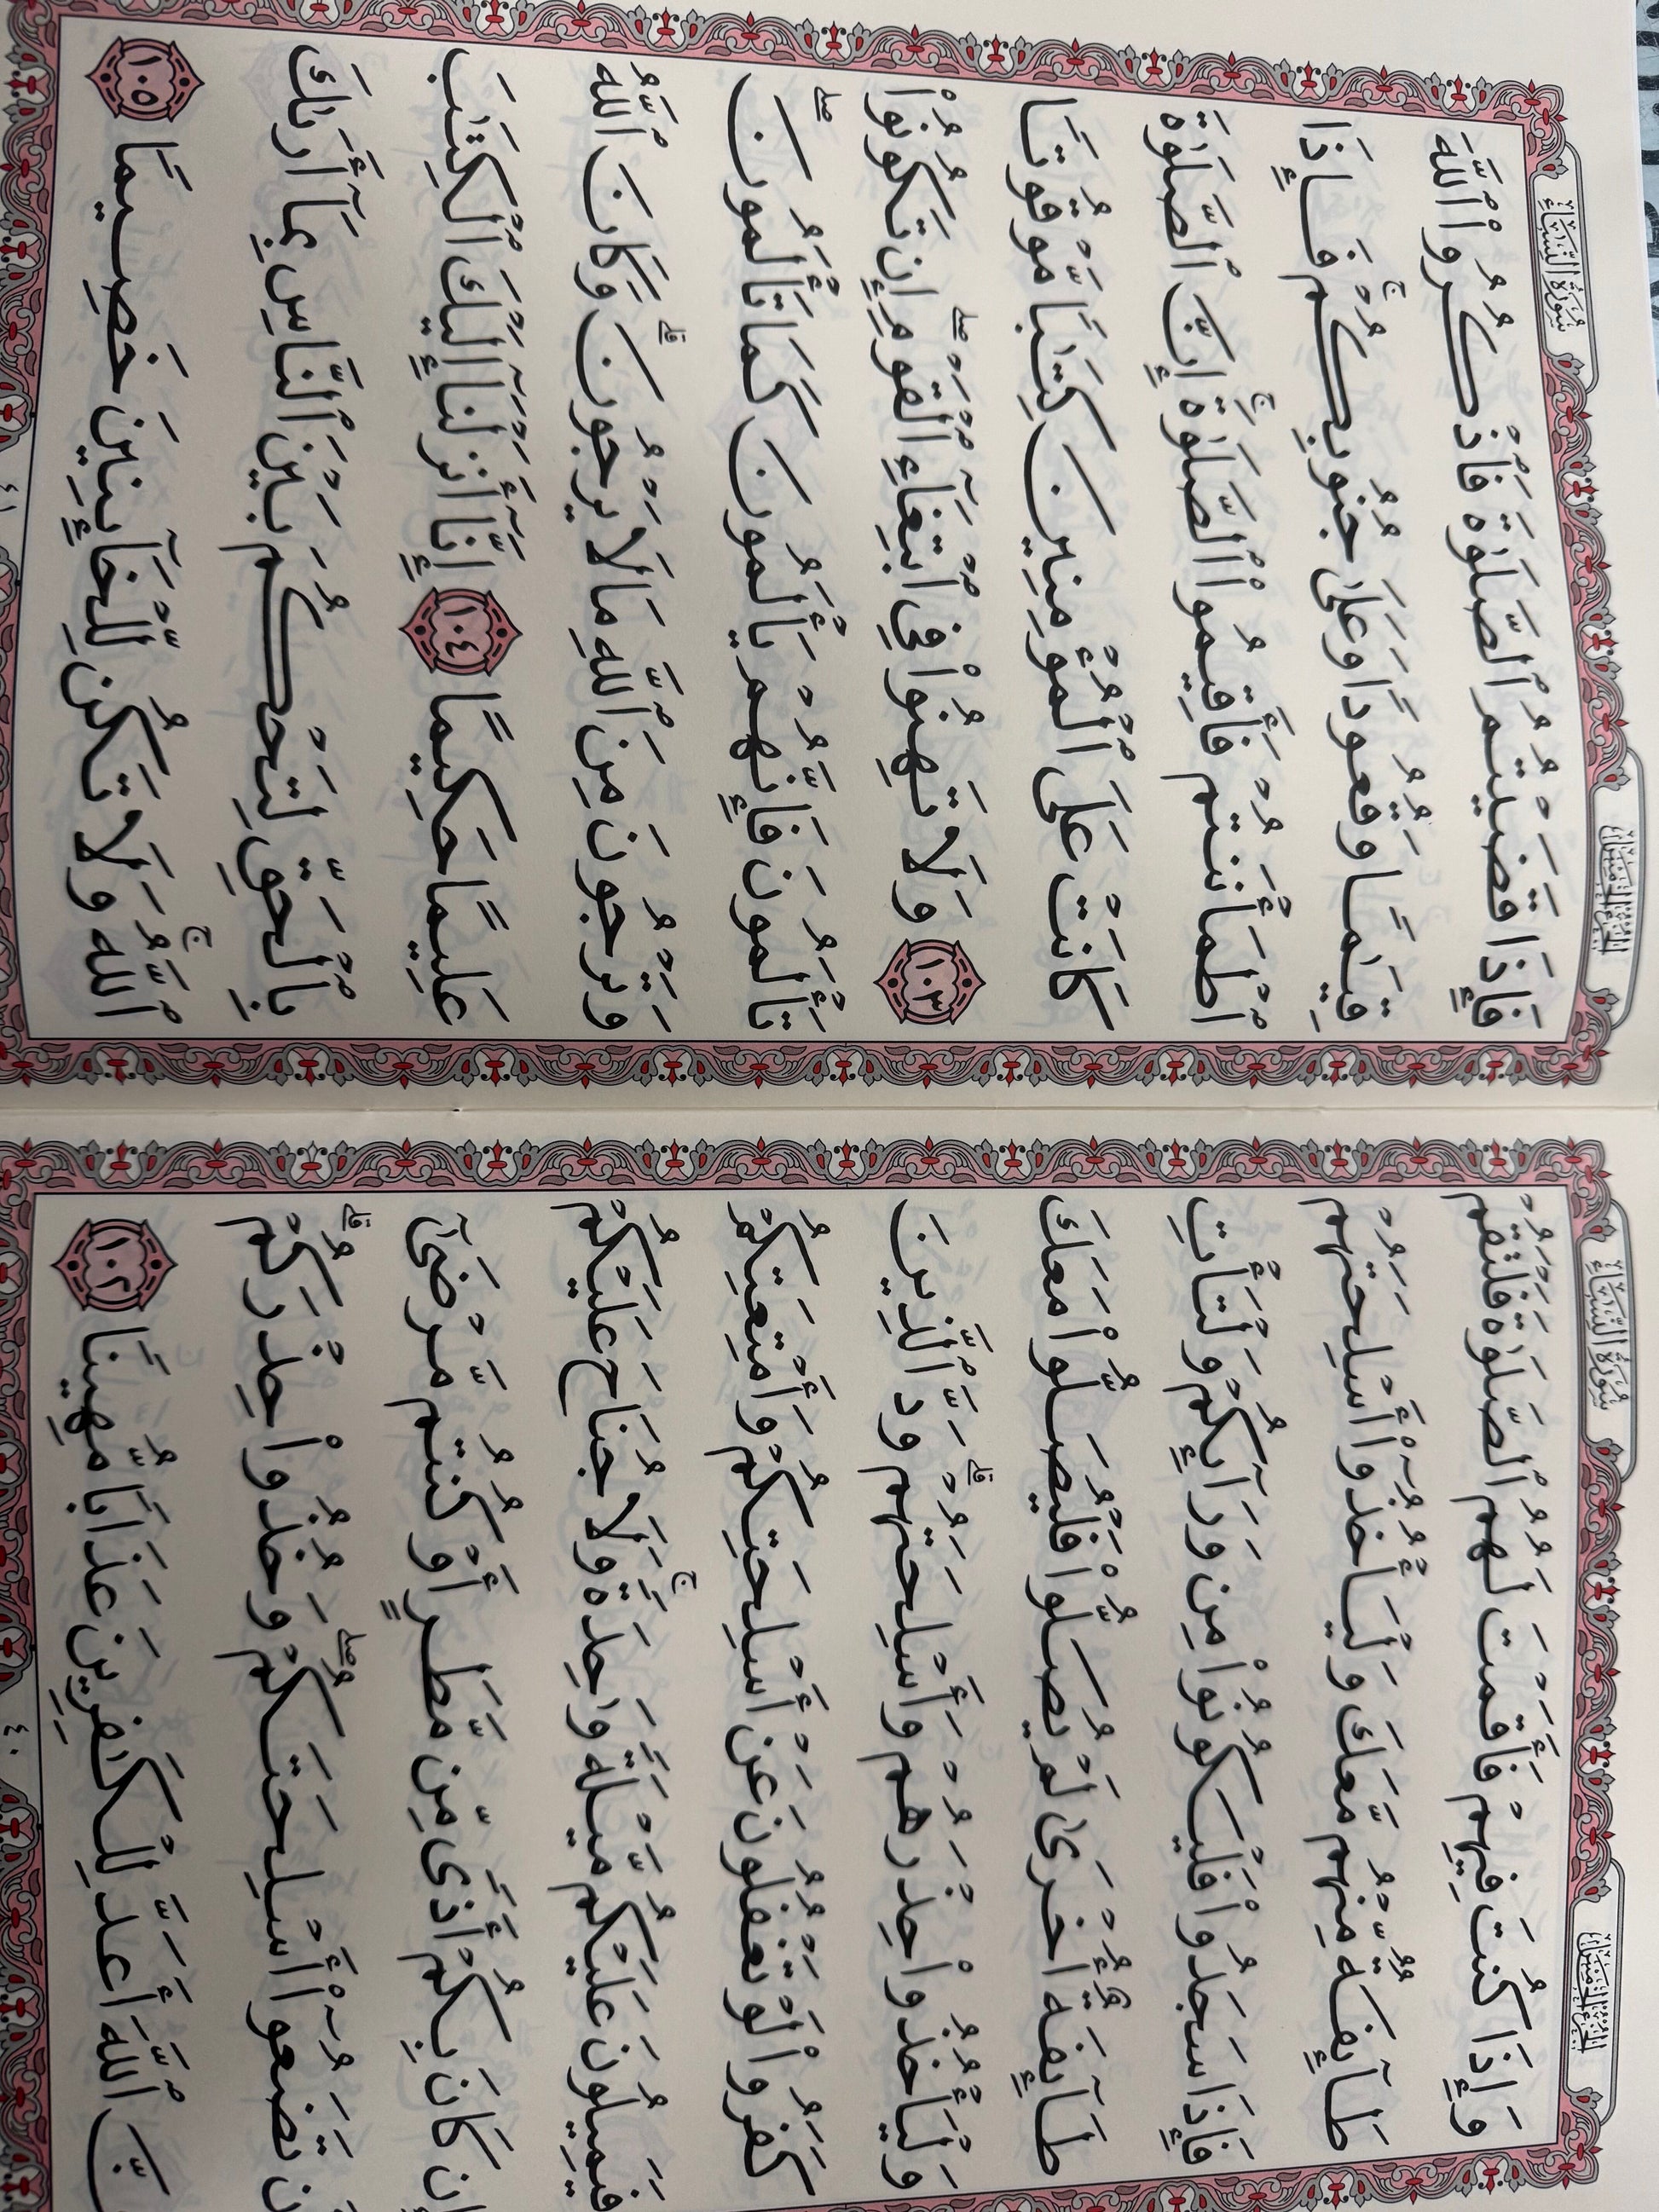 الجزء الخامس
سورة النساء
وَإِذَا كُنتَ فِيهِمْ فَأَقَمْتَ لَهُمُ ٱلصَّلَوٰةَ فَلْتَقُمْ
طَآئِفَةٌ مِّنْهُم مَّعَكَ وَلْيَأْخُذُوٓا۟ أَسْلِحَتَهُمْ
فَإِذَا سَجَدُوا۟ فَلْيَكُونُوا۟ مِن وَرَآئِكُمْ وَلْتَأْتِ
طَآئِفَةٌ أُخْرَىٰ لَمْ يُصَلُّوا۟ فَلْيُصَلُّوا۟ مَعَكَ
وَلْيَأْخُذُوا۟ حِذْرَهُمْ وَأَسْلِحَتَهُمْ ۗ وَدَّ ٱلَّذِينَ
كَفَرُوا۟ لَوْ تَغْفُلُونَ عَنْ أَسْلِحَتِكُمْ وَأَمْتِعَتِكُمْ
فَيَمِيلُونَ عَلَيْكُم مَّيْلَةً وَٰحِدَةً ۚ وَلَا جُنَاحَ عَلَيْكُمْ
إِن كَانَ بِكُمْ أَذًى مِّن مَّطَرٍ أَوْ كُنتُم مَّرْضَىٰٓ
أَن تَضَعُوٓا۟ أَسْلِحَتَكُمْ ۖ وَخُذُوا۟ حِذْرَكُمْ ۗ
إِنَّ ٱللَّهَ أَعَدَّ لِلْكَٰفِرِينَ عَذَابًا مُّهِينًا ١٠٢
٤٠
الجزء الخامس
سورة النساء
فَإِذَا قَضَيْتُمُ ٱلصَّلَوٰةَ فَٱذْكُرُوا۟ ٱللَّهَ
قِيَٰمًا وَقُعُودًا وَعَلَىٰ جُنُوبِكُمْ ۚ فَإِذَا
ٱطْمَأْنَنتُمْ فَأَقِيمُوا۟ ٱلصَّلَوٰةَ ۚ إِنَّ ٱلصَّلَوٰةَ
كَانَتْ عَلَى ٱلْمُؤْمِنِينَ كِتَٰبًا مَّوْقُوتًا
١٠٣ وَلَا تَهِنُوا۟ فِى ٱبْتِغَآءِ ٱلْقَوْمِ ۖ إِن تَكُونُوا۟
تَأْلَمُونَ فَإِنَّهُمْ يَأْلَمُونَ كَمَا تَأْلَمُونَ ۖ
وَتَرْجُونَ مِنَ ٱللَّهِ مَا لَا يَرْجُونَ ۗ وَكَانَ ٱللَّهُ
عَلِيمًا حَكِيمًا ١٠٤ إِنَّآ أَنزَلْنَآ إِلَيْكَ ٱلْكِتَٰبَ
بِٱلْحَقِّ لِتَحْكُمَ بَيْنَ ٱلنَّاسِ بِمَآ أَرَىٰكَ
ٱللَّهُ ۚ وَلَا تَكُن لِّلْخَآئِنِينَ خَصِيمًا ١٠٥
٤١